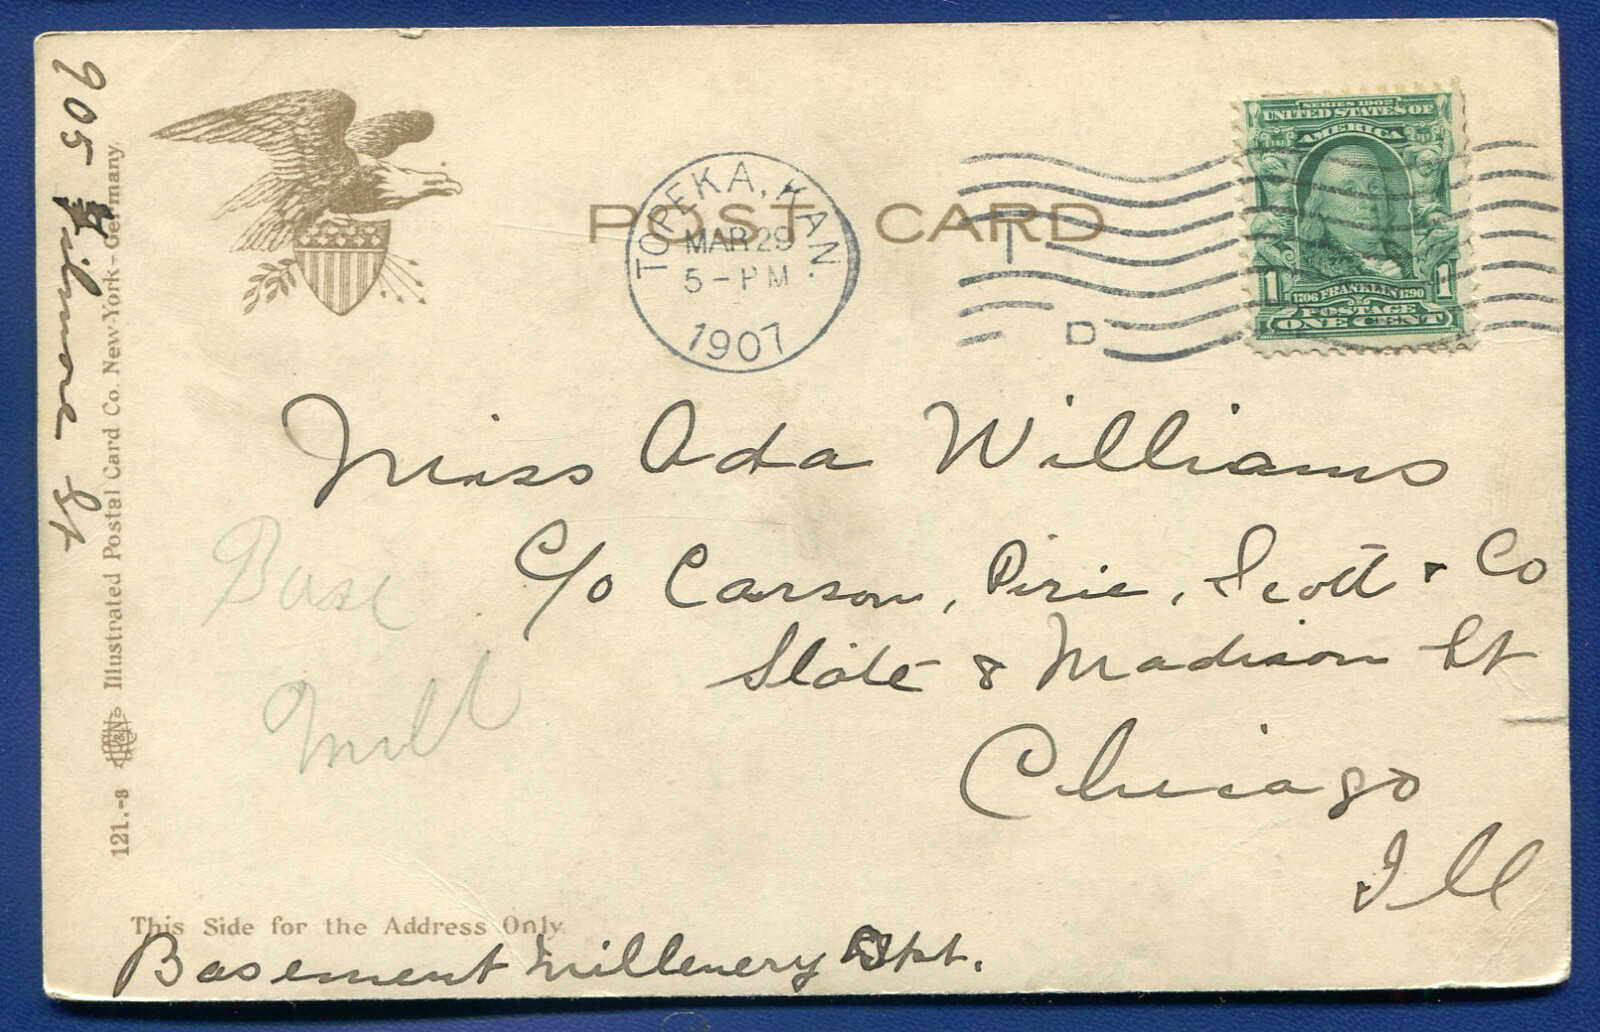 POST CARD
TOPEKA, KAN.
MAR 29
5-PM
1907
D
SERIES 1902
UNITED STATES OF
AMERICA
1 1
1706 FRANKLIN 1790
POSTAGE
ONE CENT
Miss Ada Williams
C/o Carson, Pirie, Scott & Co
State & Madison St
Chicago
Ill
Base
Mill
This Side for the Address Only.
Basement Millenery Dpt.
905 Filmore St
121.-8 Illustrated Postal Card Co. New-York-Germany.